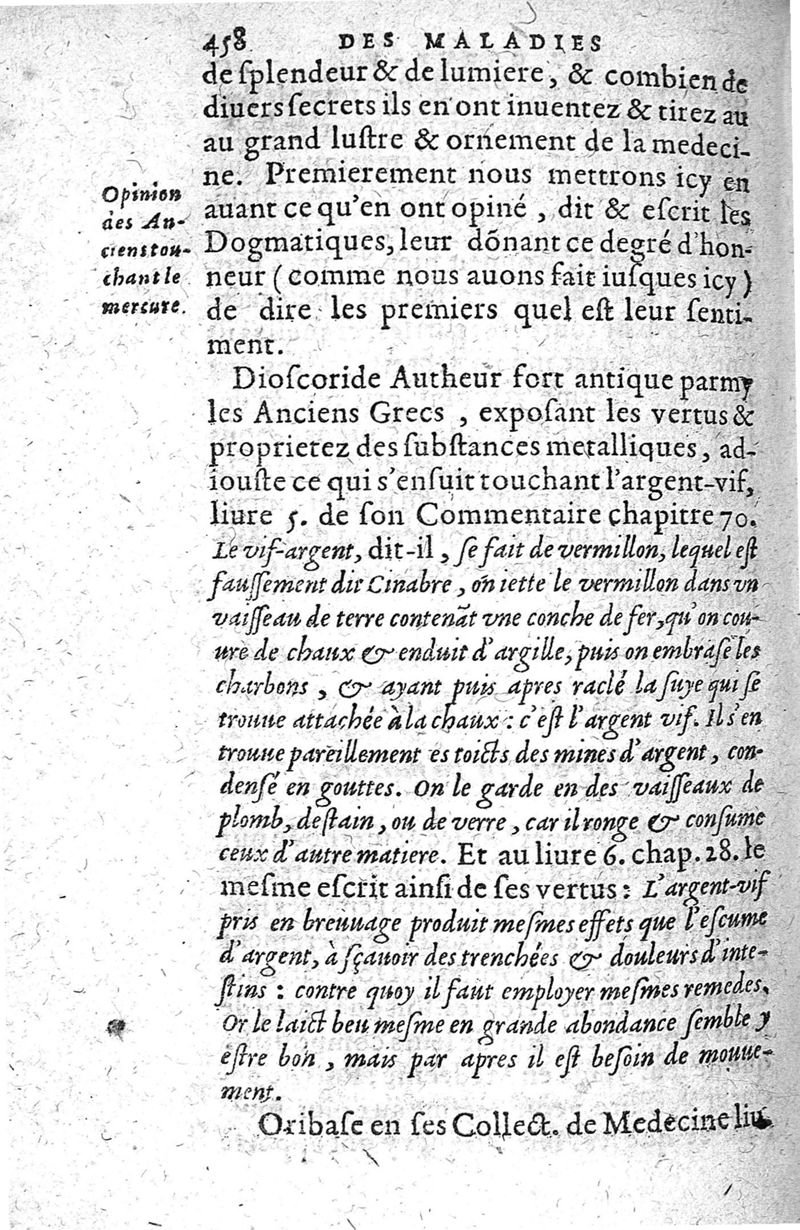 458 DES MALADIES
de ſplendeur & de lumiere, & combien de
diuers ſecrets ils en ont inuentez & tirez au
au grand luſtre & ornement de la medeci-
ne. Premierement nous mettrons icy en
auant ce qu'en ont opiné, dit & eſcrit les
Dogmatiques, leur dõnant ce degré d'hon-
neur (comme nous auons fait iuſques icy)
de dire les premiers quel eſt leur ſenti-
ment.
Opinion
des An-
ciens tou-
chant le
mercure.
Dioſcoride Autheur fort antique parmy
les Anciens Grecs, expoſant les vertus &
proprietez des ſubſtances metalliques, ad-
iouſte ce qui s'enſuit touchant l'argent-vif,
liure 5. de ſon Commentaire chapitre 70.
Le vif-argent, dit-il, ſe fait de vermillon, lequel eſt
fauſſement dit Cinabre, on iette le vermillon dans vn
vaiſſeau de terre contenãt vne conche de fer, qu'on cou-
ure de chaux & enduit d'argille, puis on embraſe les
charbons, & ayant puis apres raclé la ſuye qui ſe
trouue attachée à la chaux: c'eſt l'argent vif. Il s'en
trouue pareillement es toicts des mines d'argent, con-
denſé en gouttes. On le garde en des vaiſſeaux de
plomb, deſtain, ou de verre, car il ronge & conſume
ceux d'autre matiere. Et au liure 6. chap. 28. le
meſme eſcrit ainſi de ſes vertus: L'argent-vif
pris en breuuage produit meſmes effets que l'eſcume
d'argent, à ſçauoir des trenchées & douleurs d'inte-
ſtins: contre quoy il faut employer meſmes remedes.
Or le laict beu meſme en grande abondance ſemble y
eſtre bon, mais par apres il eſt beſoin de mouue-
ment.
Oribaſe en ſes Collect. de Medecine liu.